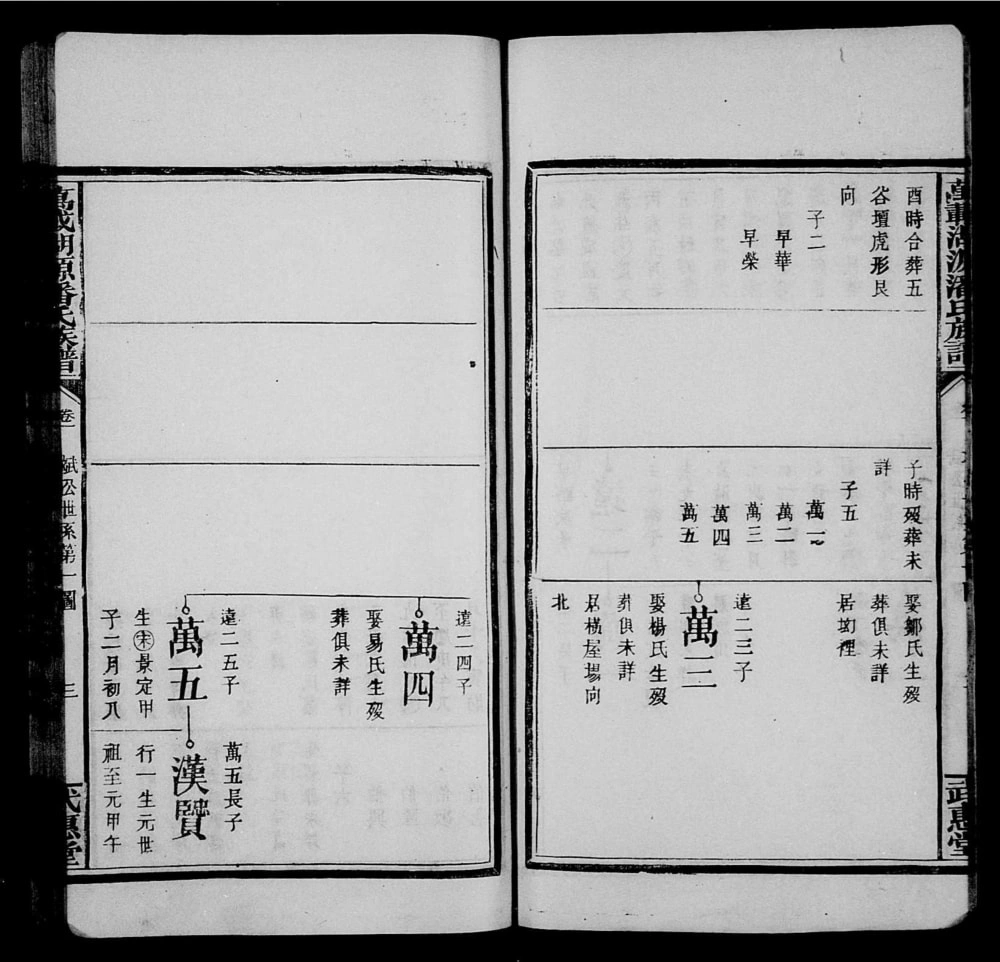 酉時合葬五
谷壇虎形艮
向
子二
早華
早榮
子時歿葬未
詳
子五
萬一
萬二
萬三
萬四
萬五
娶鄒氏生歿
葬俱未詳
居圽裡
達二三子
萬三
娶楊氏生歿
葬俱未詳
居橫屋場向
北
武惠堂
達二四子
萬四
娶易氏生歿
葬俱未詳
達二五子
萬五
生宋景定甲
子二月初八
萬五長子
漢賢
行一生元世
祖至元甲午
萬載湖源潘氏族譜
卷一
斌公世系第一圖
三
武惠堂